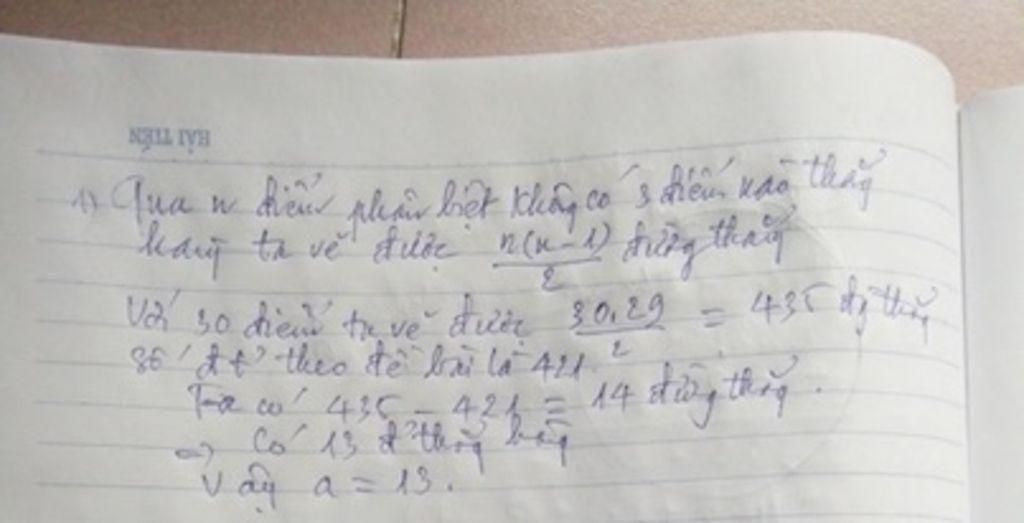 HẢI TIẾN
1) Qua n điểm phân biệt không có 3 điểm nào thẳng
hàng ta vẽ được n(n-1)/2 đường thẳng
Với 30 điểm ta vẽ được 30.29/2 = 435 đg thẳng
Số đt theo đề bài là 421
Ta có 435 - 421 = 14 đường thẳng.
=> Có 13 đ' thẳng hàng
Vậy a = 13.